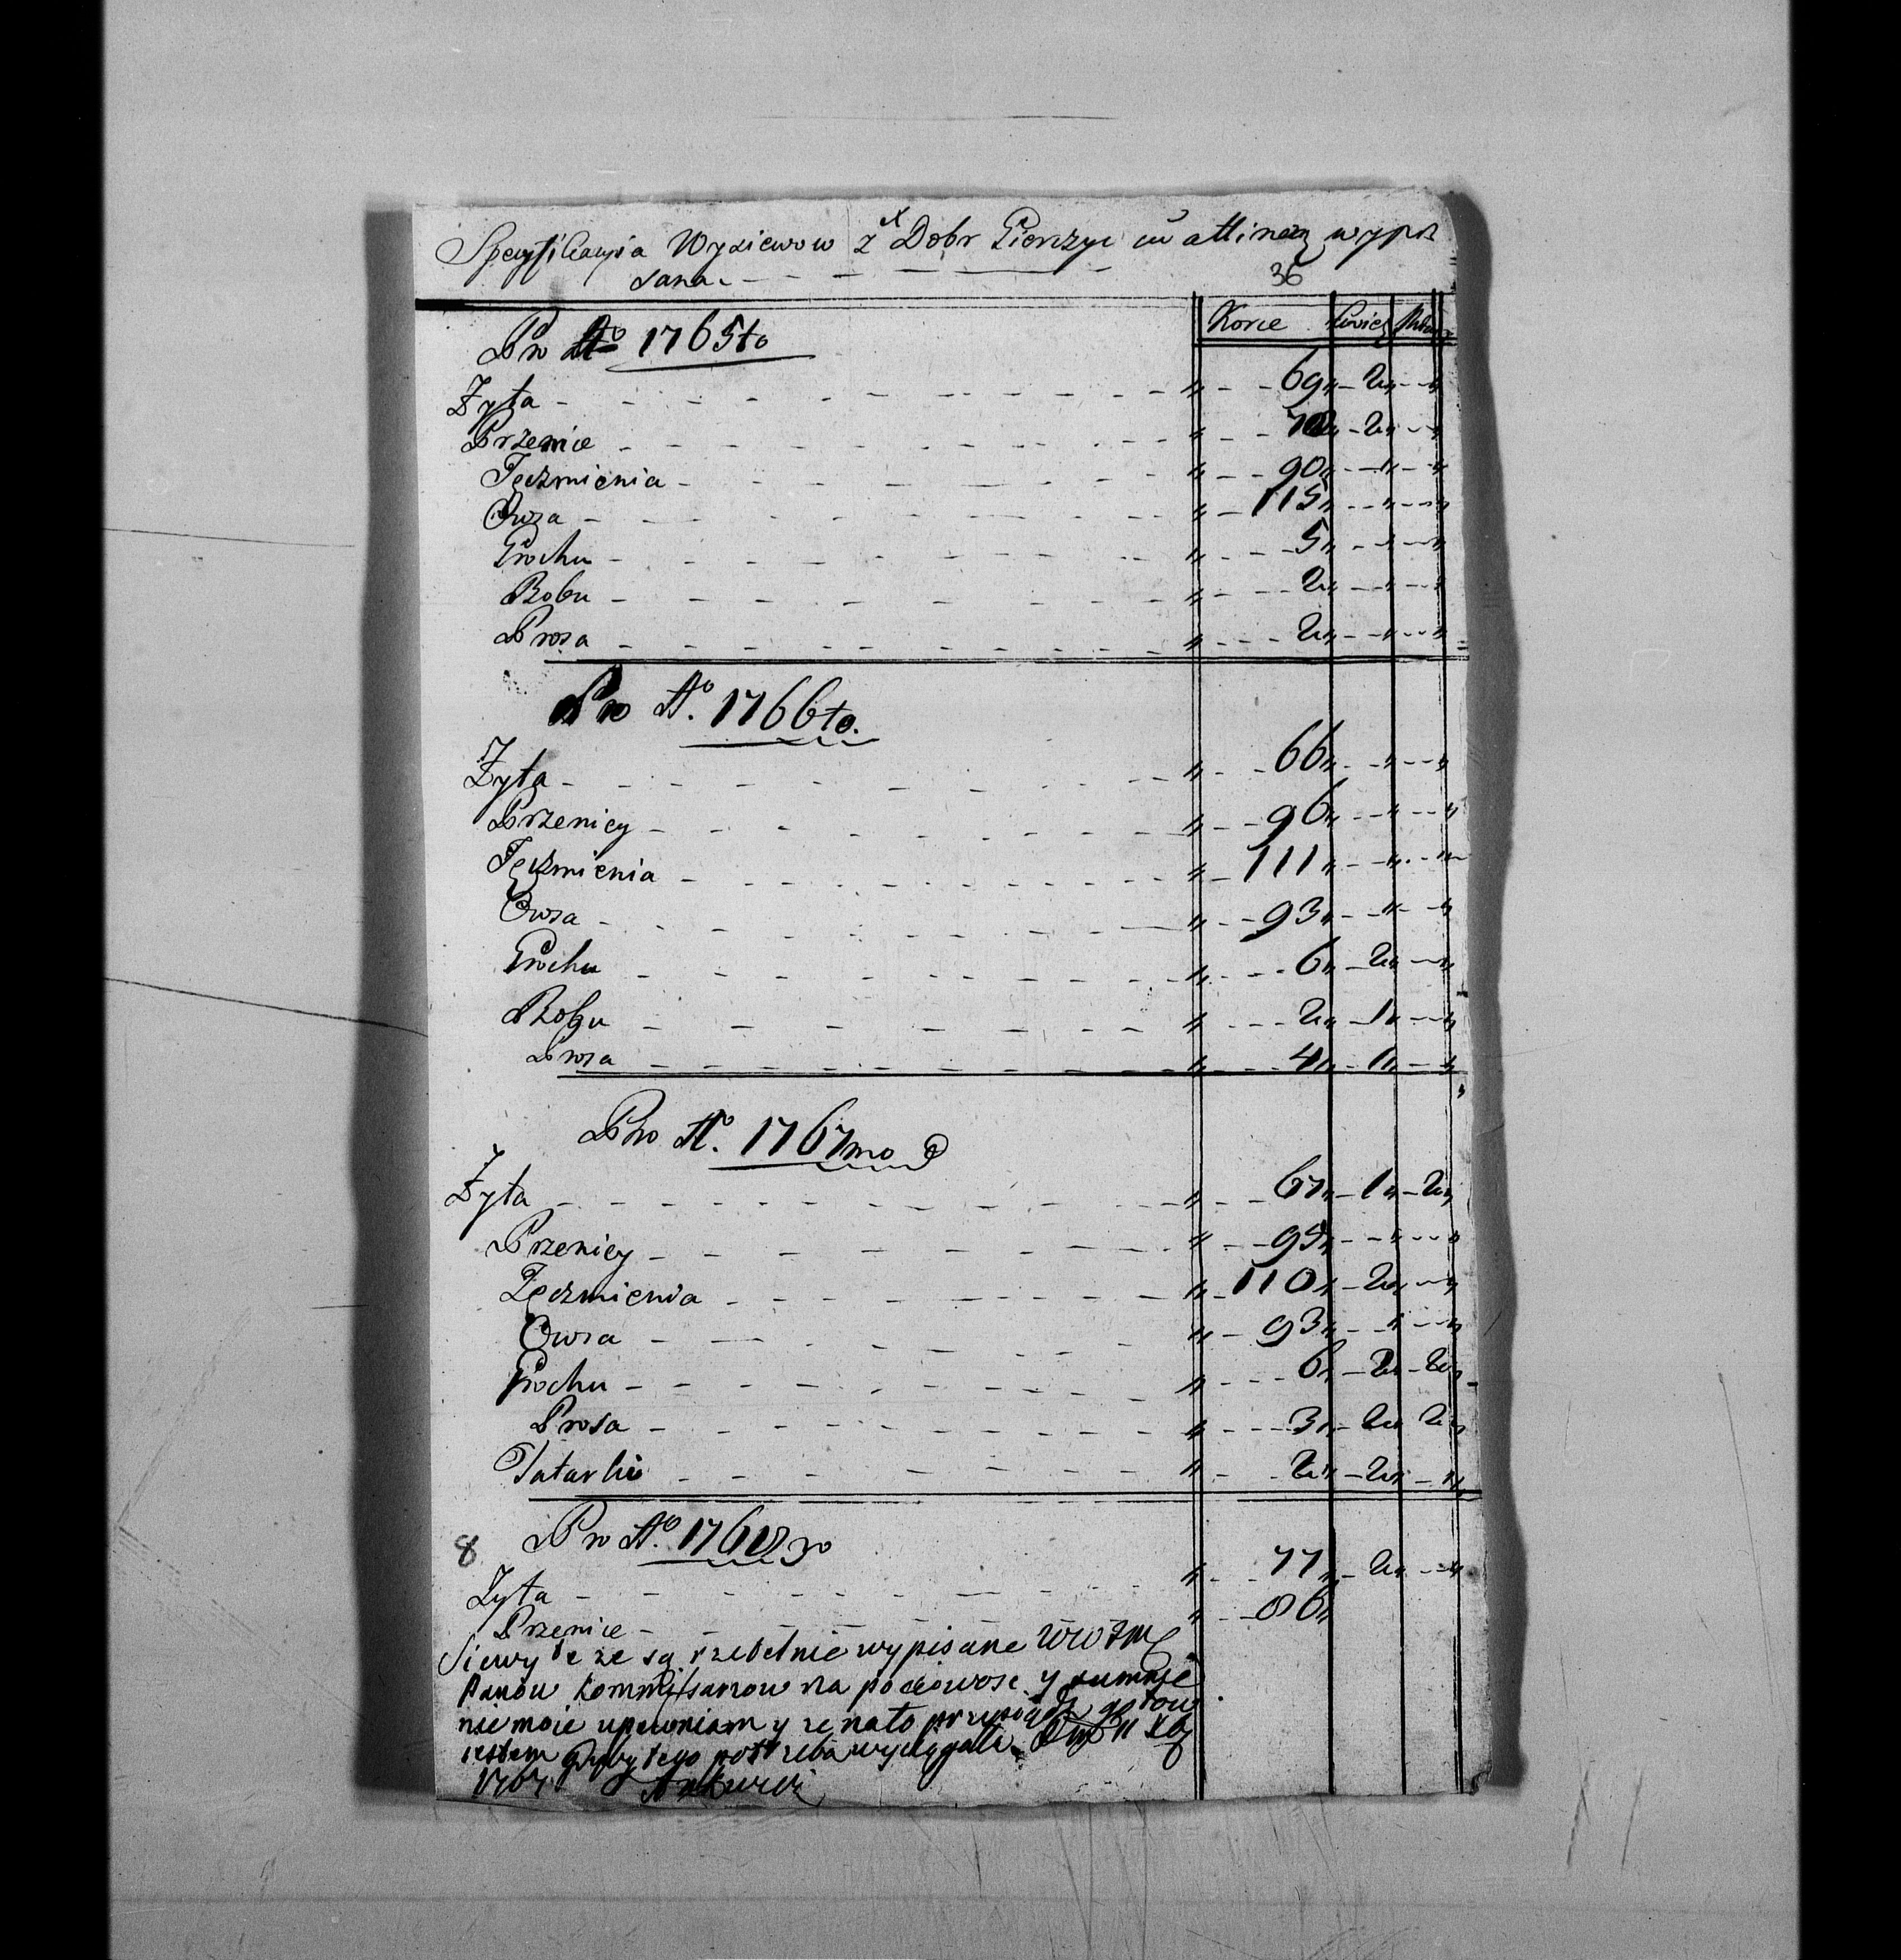 Specyfikacyia Wysiewow z Dobr Gierczyc cū attinen: wypi
sana
36
Korce Cwierci
Pro Aº 1765to
Zyta 69 2
Przenice 2
Jęczmienia 90
Owsa 115
Grochu 5
Bobu 2
Prosa 2
Pro Aº. 1766to.
Zyta 66
Przenicy 96
Jęczmienia 111
Owsa 93
Grochu 6 2
Bobu 2 1
Prosa 4 1
Pro Aº. 1767mo
Zyta 67 1 2
Przenicy 95
Jęczmienia 110 2
Owsa 93
Grochu 6 2 2
Prosa 3 2 2
Tatarki 2 2
8 Pro Aº. 1768vo
Zyta 77 2
Przenice 86
Siewy te ze są rzetelnie wypisane WW
Panow Kommissarzow na poczciwosc y sumnie
nie moie upewniam y ze na to przysiądz gotow
iestem gdyby tego potrzeba wyciągała 11 Xbr
1767